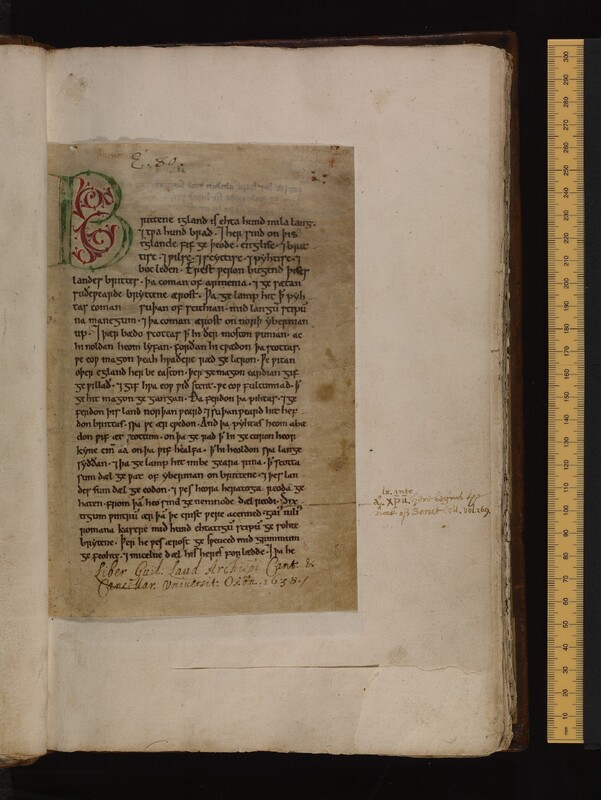 E. 80.
Brittene igland is ehta hund mila lang.
⁊ tƿa hund brad. ⁊ her sind on þis
iglande fif geþeode. englisc. ⁊ brit
tisc. ⁊ ƿilsc. ⁊ scyttisc. ⁊ pyhtisc. ⁊
boc leden. Erest ƿeron bugend þises
landes brittes. þa coman of armenia. ⁊ gesætan
suðeƿearde bryttene ærost. Þa gelamp hit ꝥ pyh
tas coman suþan of scithian. mid langū scipū
na manegum. ⁊ þa coman ærost on norþ ybernian
up. ⁊ þær bædo scottas ꝥ hi ðer moston ƿunian. ac
hi noldan heom lyfan. forðan hi cƿædon þa scottas.
ƿe eoƿ magon þeah hƿaðere ræd gelæron. Ƿe ƿitan
oþer egland her be easton. þer ge magon eardian gif
ge ƿillað. ⁊ gif hƿa eoƿ ƿið stent. ƿe eoƿ fultumiað. ꝥ
ge hit magon gegangan. Ða ferdon þa pihtas. ⁊ ge
ferdon þis land norþan ƿeard ⁊ suþan ƿeard hit hef
don brittas. sƿa ƿe ær cƿedon. And þa pyhtas heom abæ
don ƿif æt scottum. on þa gerad ꝥ hi gecuron heor
kyne cinn aa on þa ƿif healfa. ꝥ hi heoldon sƿa lange
syððan. ⁊ þa gelamp hit imbe geara rina. ꝥ scotta
sum dæl geƿat of ybernian on brittene. ⁊ þes lan
des sum dæl geeodon. ⁊ ƿes heora heratoga reoda ge
haten. From þā heo sind genemnode dæl reodi. Six
tigum ƿintrū ær þā þe crist ƿere acenned. gaius iulius
romana kasere mid hund ehtatigū scipū gesohte
brytene. Þer he ƿes ærost gesƿenced mid grimmum
gefeohte. ⁊ micelne dæl his heres forlædde. ⁊ þa he
Liber Guil. Laud Archiepi Cant. &
Cancellar. Universit: Oxon. 1638.
lx. ante